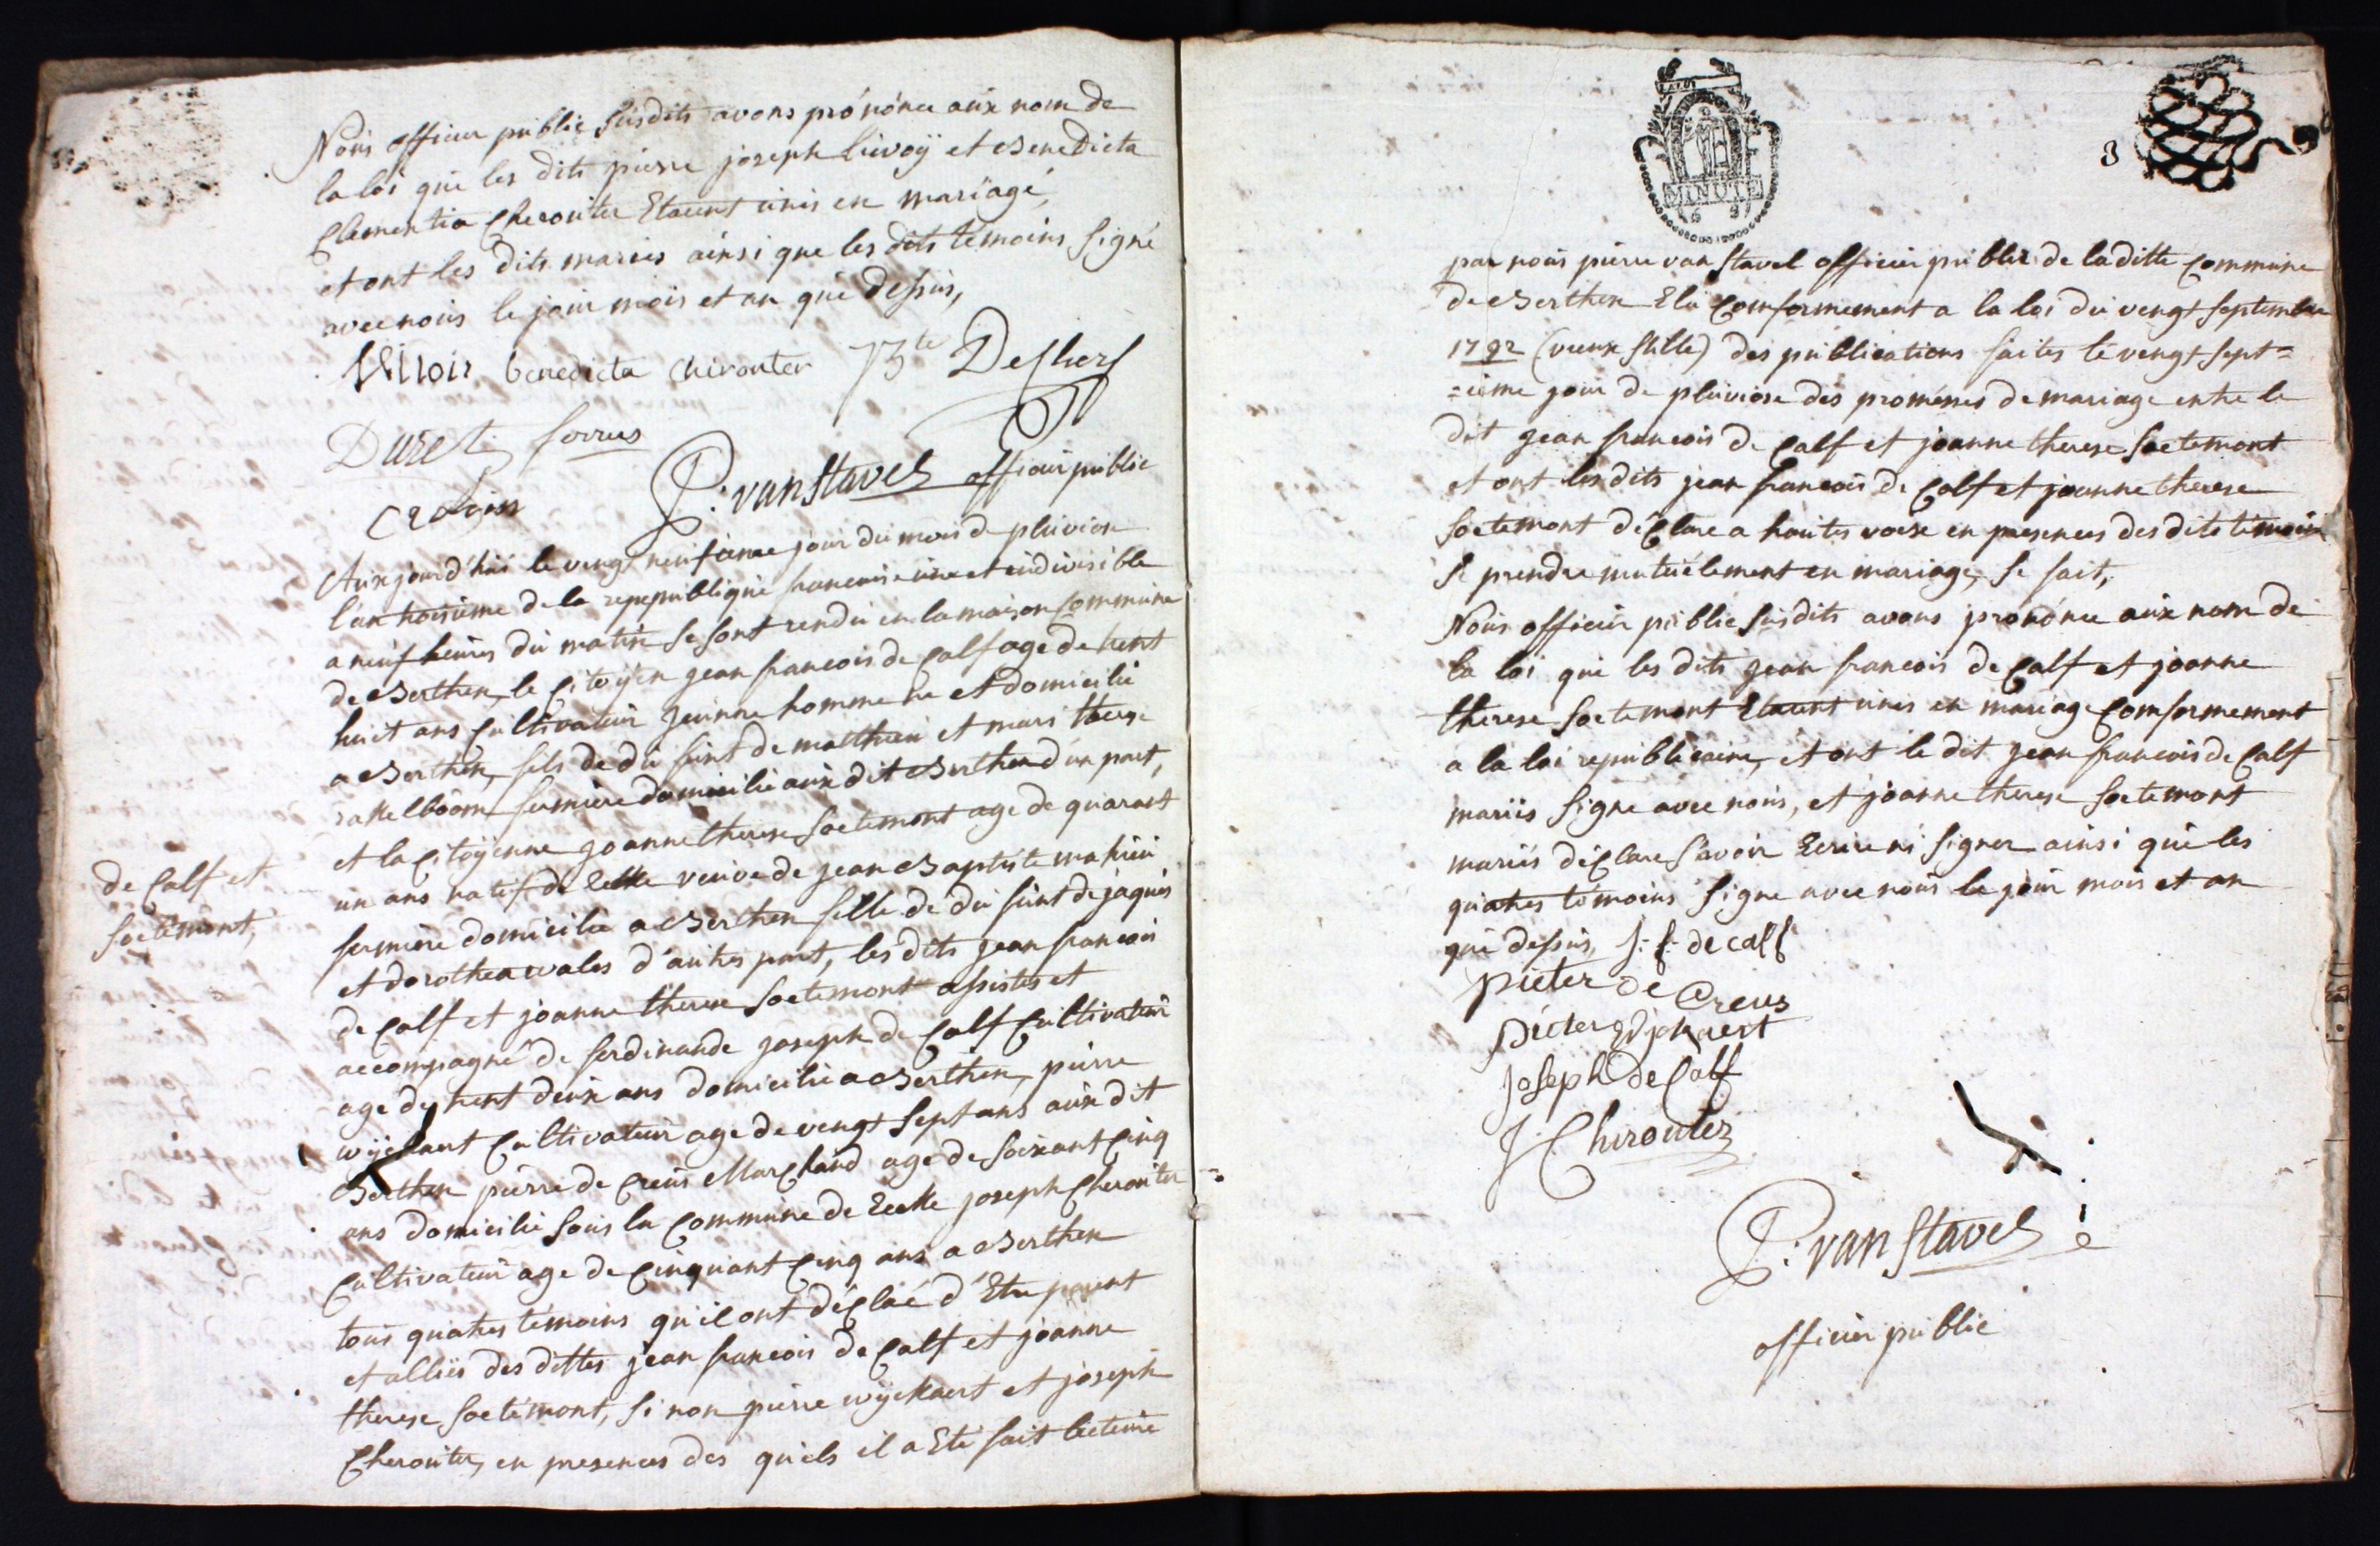 Nous officier public susdits avons prónónce aux nom de
la loi que les dits pierre joseph lievoÿ et Benedicta
Clementia Cherouter Etaient unis en mariagé,
et ont les dits mariés ainsi que les dits temoins signé
avec nous le jour mois et an que dessus,
benedicta chirouter
Duret
P: van Stavel officier public
Aux jourd'hui le vengt neufieme jour du mois de pluviose
l'an troisieme de la repepublique francaise une et indivisible
a neuf heures du matin se sont rendu en la maison commune
de Berthen, le Citoÿen jean francois de Calf age de trent
huit ans Cultivateur jeunne homme ne et domicilié
a Berthen, fils de du funt de matthieu et mari therese
rakelboom fermiere domicilié aux dit Berthen d'un part,
et la Citoÿenne joanne therese soetemont age de quarant
un ans natif de Eecke veuve de jean Baptiste mahieu
fermiere domicilie a Berthen fille de du funt de jaques
et dorothea wales d'autres part, les dits jean francois
de Calf et joanne therese soetemont assistes et
accompagné de ferdinande joseph de Calf Cultivateur
age de trent deux ans domicilié a Berthen, pierre
wÿckaert Cultivateur age de vengt sept ans aux dit
Berthen pierre de Creus Marchand age de soixant Cinq
ans domicilié sous la Commune de Eecke joseph Cherouter
Cultivateur age de Cinquant Cinq ans a Berthen
tous quatres témoins qu'il ont déclaé d'Etre parent
et alliés des dittes jean francois de Calf et joanne
therese soetemont, si non pierre wÿckaert et joseph
Cherouter, en presences des quels il a Eté fait lecteure
de Calf et
soetemont,
MINUTE
3
par nous pierre van Stavel officier publix de la ditte Commune
de Berthen Elu Comformement a la loi du vengt septembre
1792 (vieux stille) des publications faites le vengt sept=
=ieme jour de pluviose des promésses de mariage entre le
dit jean francois de Calf et joanne therese soetemont
et ont les dits jean francois de Calf et joanne therese
soetemont déClare a hautes voixe en presences des dits témoins
se prendre mutuélement en mariage, se fait,
Nous officier public susdits avons prononce aux nom de
la loi que les dits jean francois de Calf et joanne
therese soetemont Etaient unis en mariage Comformement
a la loi republicaine, et ont le dit jean francois de Calf
mariés signe avec nous, et joanne therese soetemont
mariés déClare savoir Ecrire ni signer ainsi que les
quatres témoins signe avec nous le jour mois et an
que dessus, J: f: de calf
pieter de Creus
Pieter Wyckaert
joseph de Calf
J: Chirouter
P: van Stavel
officier public